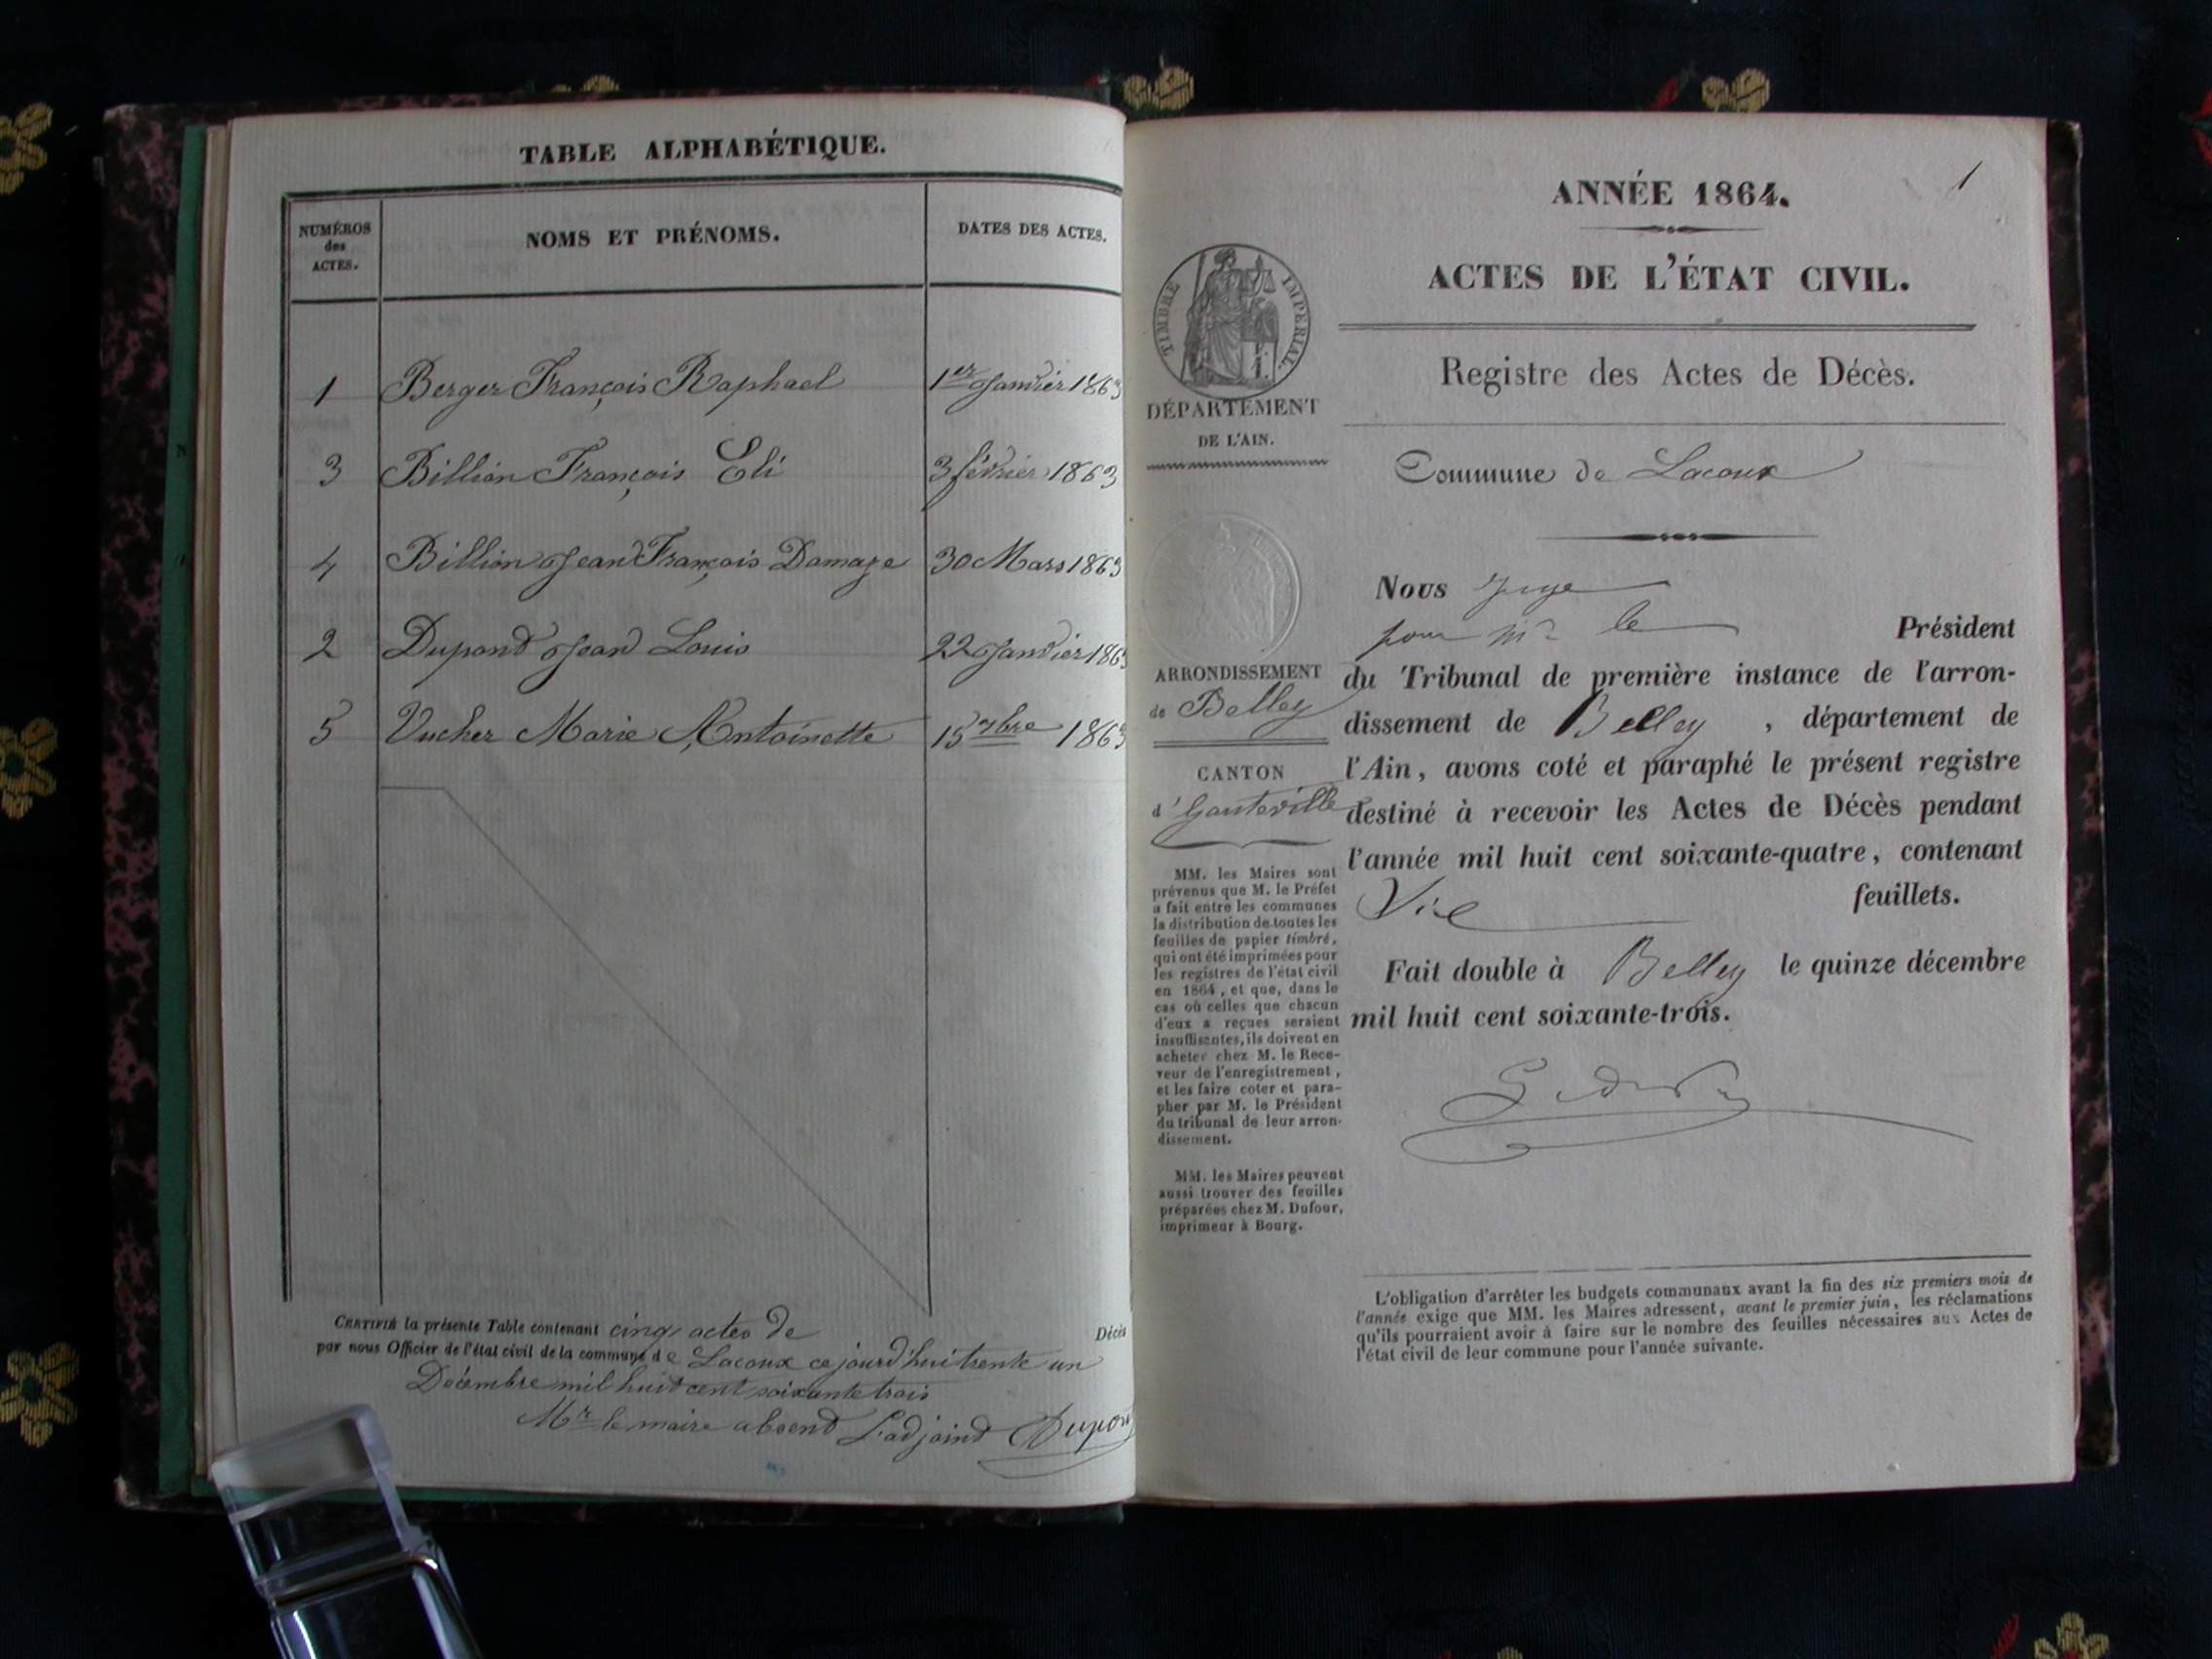 TABLE ALPHABÉTIQUE.
NUMÉROS
des
ACTES.
NOMS ET PRÉNOMS.
DATES DES ACTES.
1 Berger François Raphael 1er Janvier 1863
3 Billion François Eli 3 février 1863
4 Billion Jean François Damaze 30 Mars 1863
2 Dupond Jean Louis 22 Janvier 1863
5 Vucher Marie Antoinette 15 9bre 1863
CERTIFIÉ la présente Table contenant cinq actes de Décès
par nous Officier de l'état civil de la commune de Lacoux ce jourd'hui trente un
Décembre mil huit cent soixante trois
Mr le maire absend L'adjoind Dupon
1
ANNÉE 1864.
ACTES DE L'ÉTAT CIVIL.
Registre des Actes de Décès.
Commune de Lacoux
TIMBRE IMPÉRIAL.
DÉPARTEMENT
DE L'AIN.
ARRONDISSEMENT
de Belley
CANTON
d'hauteville
MM. les Maires sont
prévenus que M. le Préfet
a fait entre les communes
la distribution de toutes les
feuilles de papier timbré,
qui ont été imprimées pour
les registres de l'état civil
en 1864, et que, dans le
cas où celles que chacun
d'eux a reçues seraient
insuffisantes, ils doivent en
acheter chez M. le Rece-
veur de l'enregistrement,
et les faire coter et para-
pher par M. le Président
du tribunal de leur arron-
dissement.
MM. les Maires peuvent
aussi trouver des feuilles
préparées chez M. Dufour,
imprimeur à Bourg.
Nous Juge
pour Mr le Président
du Tribunal de première instance de l'arron-
dissement de Belley, département de
l'Ain, avons coté et paraphé le présent registre
destiné à recevoir les Actes de Décès pendant
l'année mil huit cent soixante-quatre, contenant
feuillets.
Fait double à Belley le quinze décembre
mil huit cent soixante-trois.
L'obligation d'arrêter les budgets communaux avant la fin des six premiers mois de
l'année exige que MM. les Maires adressent, avant le premier juin, les réclamations
qu'ils pourraient avoir à faire sur le nombre des feuilles nécessaires aux Actes de
l'état civil de leur commune pour l'année suivante.